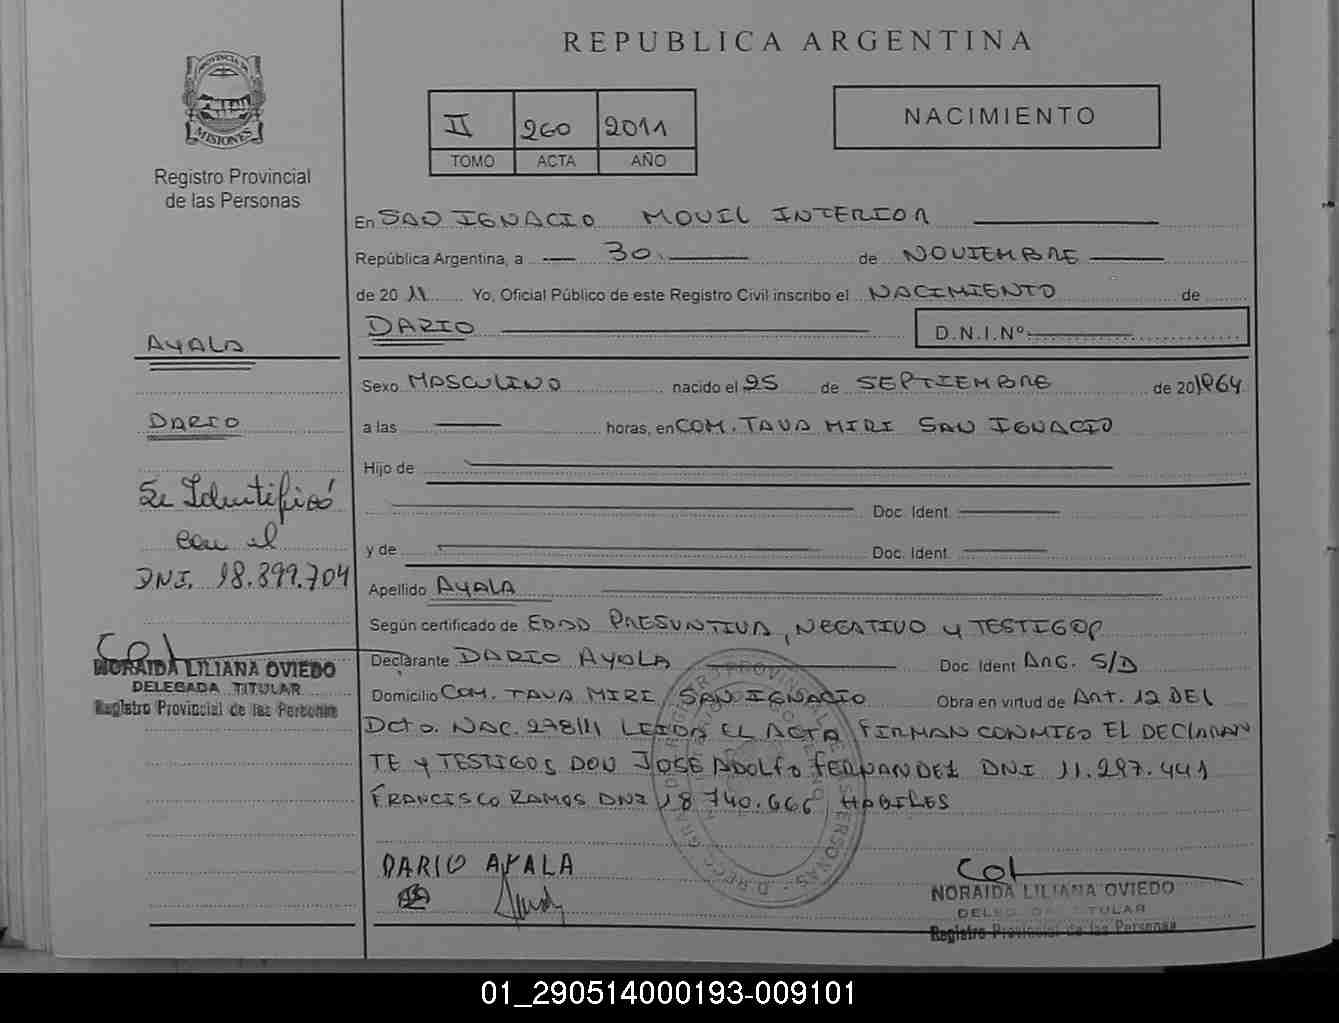 REPUBLICA ARGENTINA
PROVINCIA DE
MISIONES
Registro Provincial
de las Personas
II 260 2011
TOMO ACTA AÑO
NACIMIENTO
En SAN IGNACIO MOVIL INTERIOR
República Argentina, a 30. de NOVIEMBRE
de 20 11 Yo, Oficial Público de este Registro Civil inscribo el NACIMIENTO de
DARIO D.N.I.Nº:
AYALA
DARIO
Se Identificó
con el
DNI. 18.899.704
NORAIDA LILIANA OVIEDO
DELEGADA TITULAR
Registro Provincial de las Personas
Sexo MASCULINO nacido el 25 de SEPTIEMBRE de 20 1964
a las horas, en COM. TAVA MIRI SAN IGNACIO
Hijo de
Doc. Ident.
y de Doc. Ident.
Apellido AYALA
Según certificado de EDAD PRESUNTIVA, NEGATIVO y TESTIGOS
Declarante DARIO AYALA Doc. Ident ARG. S/D
Domicilio COM. TAVA MIRI SAN IGNACIO Obra en virtud de Art. 12 DEL
Dcto. NAC. 278/11 LEIDA EL ACTA FIRMAN CONMIGO EL DECLARAN
TE y TESTIGOS DON JOSE ADOLFO FERNANDEZ DNI 11.297.441
FRANCISCO RAMOS DNI 18.740.666 HABILES
DARIO AYALA
NORAIDA LILIANA OVIEDO
DELEGADA TITULAR
Registro Provincial de las Personas
01_290514000193-009101